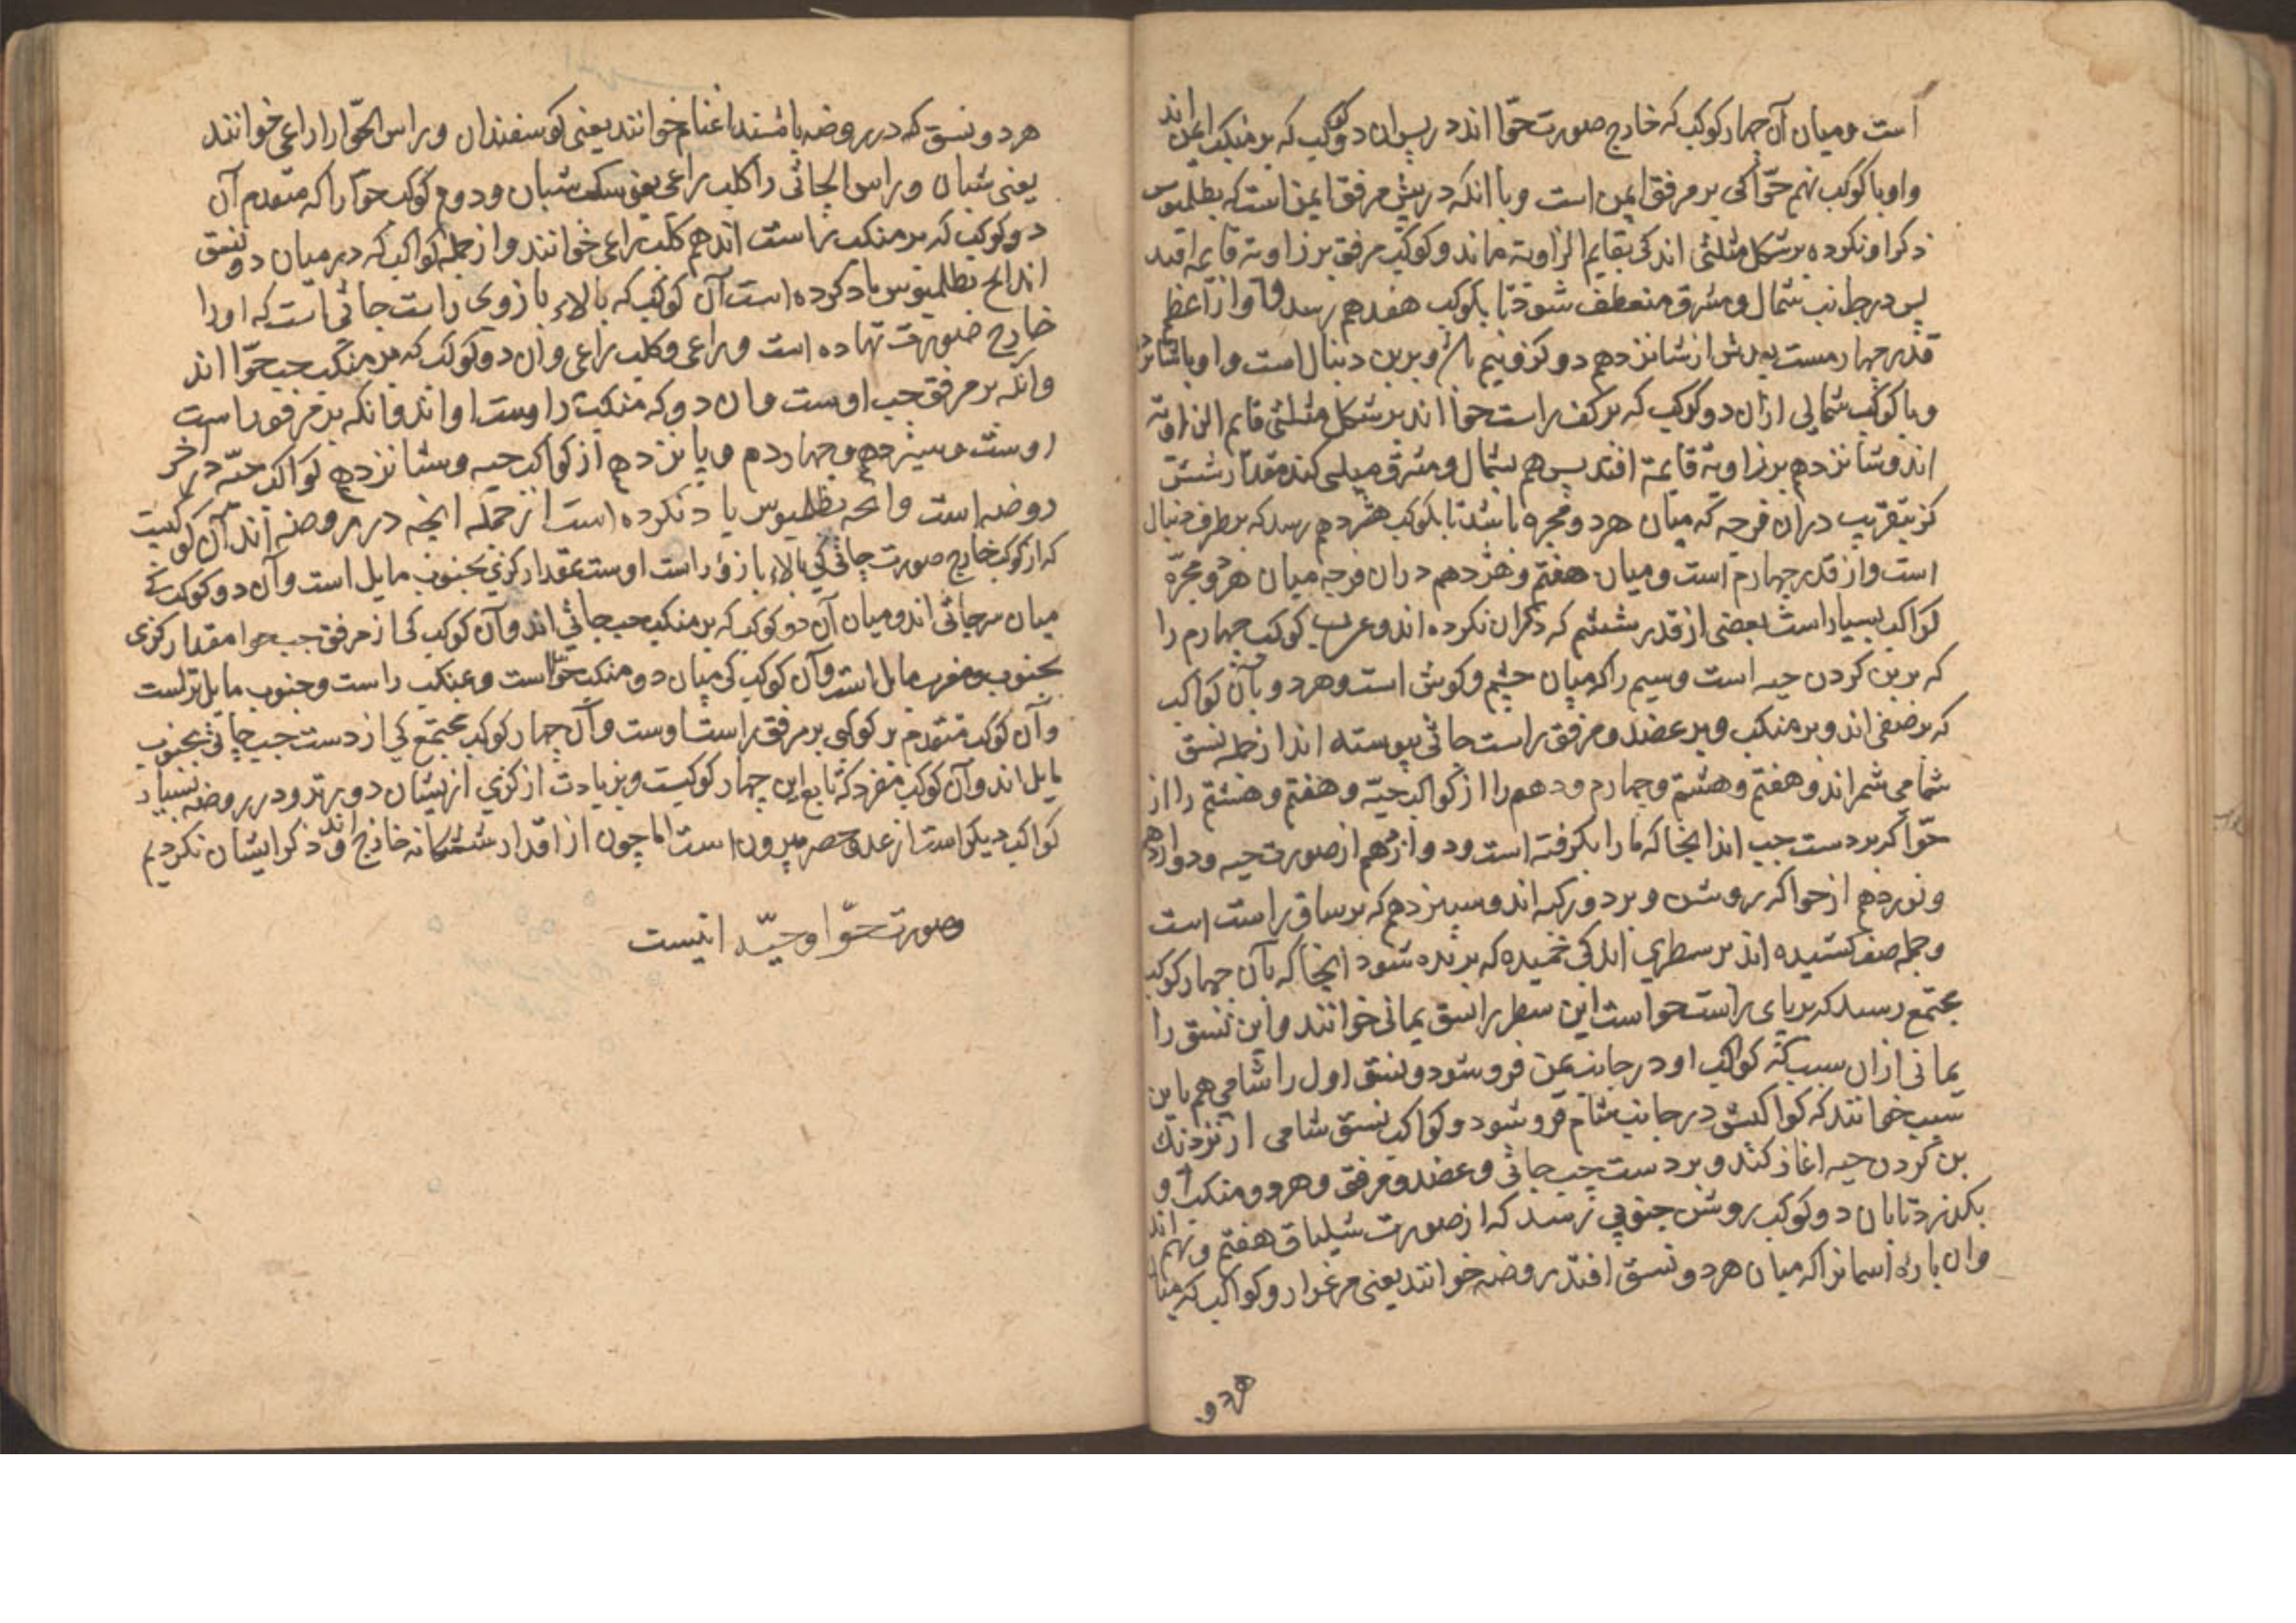 است و میان آن چهار کوکب که خارج صورت حوّا اند در پس ان دو کوکب که بر منکب ایمن اند
و او با کوکب نهم حوّا کی بر مرفق ایمن است و با انکه در پیش مرفق ایمن است که بطلمیوس
ذکر او نکرده بر شکل مثلثی اند کی بقایم الزاویة ماند و کوکب مرفق بر زاویة قایمه افتد
پس در جانب شمال و مشرق منعطف شود تا بکوکب هفدهم رسد و او از اعظم
قدر چهارمست بعدش از شانزدهم دو کز و نیم باشد و برین دنبال است و او با شانزدهم
و با کوکب شمالی از ان دو کوکب که بر کف راست حوا اند بر شکل مثلثی قایم الزاویة
اند و شانزدهم بر زاویة قایمة افتد پس هم بشمال و مشرق میلی کند مقدار شش
کز بتقریب در ان فرجه که میان هر دو مجره باشد تا بکوکب هژدهم رسد که بر طرف دنبال
است و از قدر چهارم است و میان هفتم و هژدهم در ان فرجه میان هر دو مجرّه
کواکب بسیار است بعضی از قدر ششم که ذکر ان نکرده اند و عرب کوکب چهارم را
که بر بن کردن حیه است و سیم را که میان چشم و کوش است و هر دو با آن کواکب
که بر ضفی اند و بر منکب و بر عضد و مرفق راست جاثی پیوسته اند از جمله نسق
شامی شمراند و هفتم و هشتم و چهارم و دهم را از کواکب حیّه و هفتم و هشتم را از
حوّا که بر دست چپ اند انجا که مار را بکرفته است و دوازدهم از صورت حیه و دوازدهم
و نوزدهم از حوا که روشن و بر دو رکبه اند و سیزدهم که بر ساق راست است
و جمله صف کشیده اند بر سطری اندکی خمیده که بریده شود انجا که بآن چهار کوکب
مجتمع رسد که بر پای راست حوا است این سطر را نسق یمانی خوانند و این نسق را
یمانی از ان سبب که کواکب او در جانب یمن فرو شود و نسق اول را شامی هم باین
سبب خوانند که کواکبش در جانب شام فرو شود و کواکب نسق شامی از نزدیک
بن کردن حیه اغاز کند و بر دست چپ جاثی و عضد و مرفق و هر دو منکب او
بکذرد تا بان دو کوکب روشن جنوبی رسد که از صورت شلیاق هفتم و نهم اند
و ان پاره اسمانرا که میان هر دو نسق افتد روضه خوانند یعنی مرغزار و کواکب که میان
هر دو
هر دو نسق که در روضه باشند اغنام خوانند یعنی کوسفندان و راس الحوّا را راعی خوانند
یعنی شبان و راس الجاثی را کلب راعی یعنی سک شبان و دوم کوکب حوّا را که متقدم آن
دو کوکب که بر منکب راست اند هم کلب راعی خوانند و از جمله کواکب که در میان دو نسق
اند انچ بطلمیوس یاد کرده است آن کوکب که بالاء بازوی راست جاثی است که او را
خارج صورت نهاده است و راعی و کلب راعی و ان دو کوکب که بر منکب چپ حوّا اند
وانکه بر مرفق چپ اوست و ان دو که منکب راست او اند و انکه بر مرفق راست
اوست و سیزدهم و چهاردم و پانزدهم از کواکب حیه و شانزدهم کواکب حیّه در آخر
روضه است و انچه بطلمیوس یاد نکرده است از جمله انچه در روضه اند آن کوکبیست
که از کوکب خارج صورت جاثی کی بالاء بازو راست اوست بمقدار کزی بجنوب مایل است و آن دو کوکب که
میان سر جاثی اند و میان آن دو کوکب که بر منکب چپ جاثی اند و آن کوکب کی از مرفق چپ حوا مقدار کزی
بجنوب و مغرب مایل است و آن کوکب کی میان دو منکب حوّا است و بمنکب راست و جنوب مایل تر است
و آن کوکب متقدم بر کوکبی بر مرفق راست اوست و آن چهار کوکب مجتمع کی از دست چپ جاثی بجنوب
مایل اند و آن کوکب منفرد که تابع این چهار کوکبست و بزیادت از کزی از یشان دورتر و در روضه بسیار
کواکب دیکر است از عد و حصر بیرون است اما چون از اقدار ششکانه خارج اند و ذکر ایشان نکردیم
و صورت حوّا و حیّه اینست